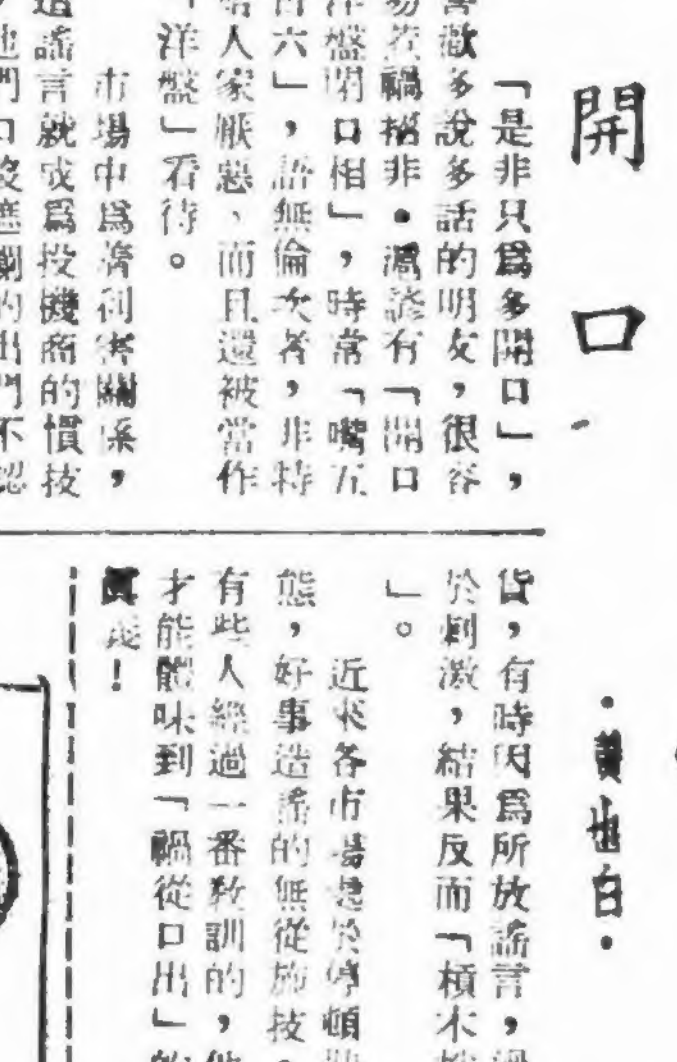 開口
・黄也白・
「是非只爲多開口」，
歡多說多話的朋友，很容
易惹禍招非。滬諺有「開口
洋盤閉口相」，時常「嘴五
百六」，語無倫次者，非特
給人家厭惡、而且還被當作
「洋盤」看待。
市場中爲着利害關係，
造謠言就成爲投機商的慣技
他們口沒遮攔的出門不認
貨，有時因爲所放謠言，過
於刺激，結果反而「積木
」。
近來各市場處於停頓
態，好事造謠的無從施技，
有些人經過一番教訓的，他
才能體味到「禍從口出」的
眞義！